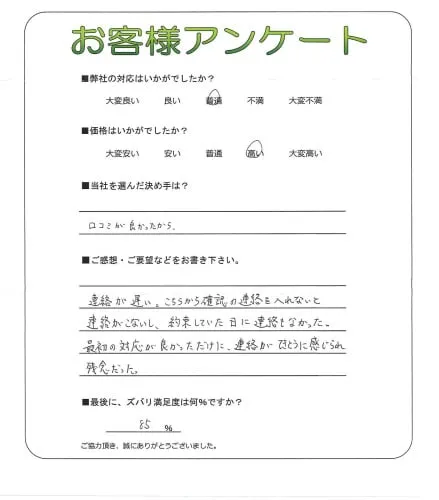 お客様アンケート
■弊社の対応はいかがでしたか？
大変良い 良い 普通 不満 大変不満
■価格はいかがでしたか？
大変安い 安い 普通 高い 大変高い
■当社を選んだ決め手は？
口コミが良かったから。
■ご感想・ご要望などをお書き下さい。
連絡が遅い。こちらから確認の連絡を入れないと
連絡がこないし、約束していた日に連絡もなかった。
最初の対応が良かっただけに、連絡が
に感じられ
残念だった。
■最後に、ズバリ満足度は何％ですか？
85 ％
ご協力頂き、誠にありがとうございました。